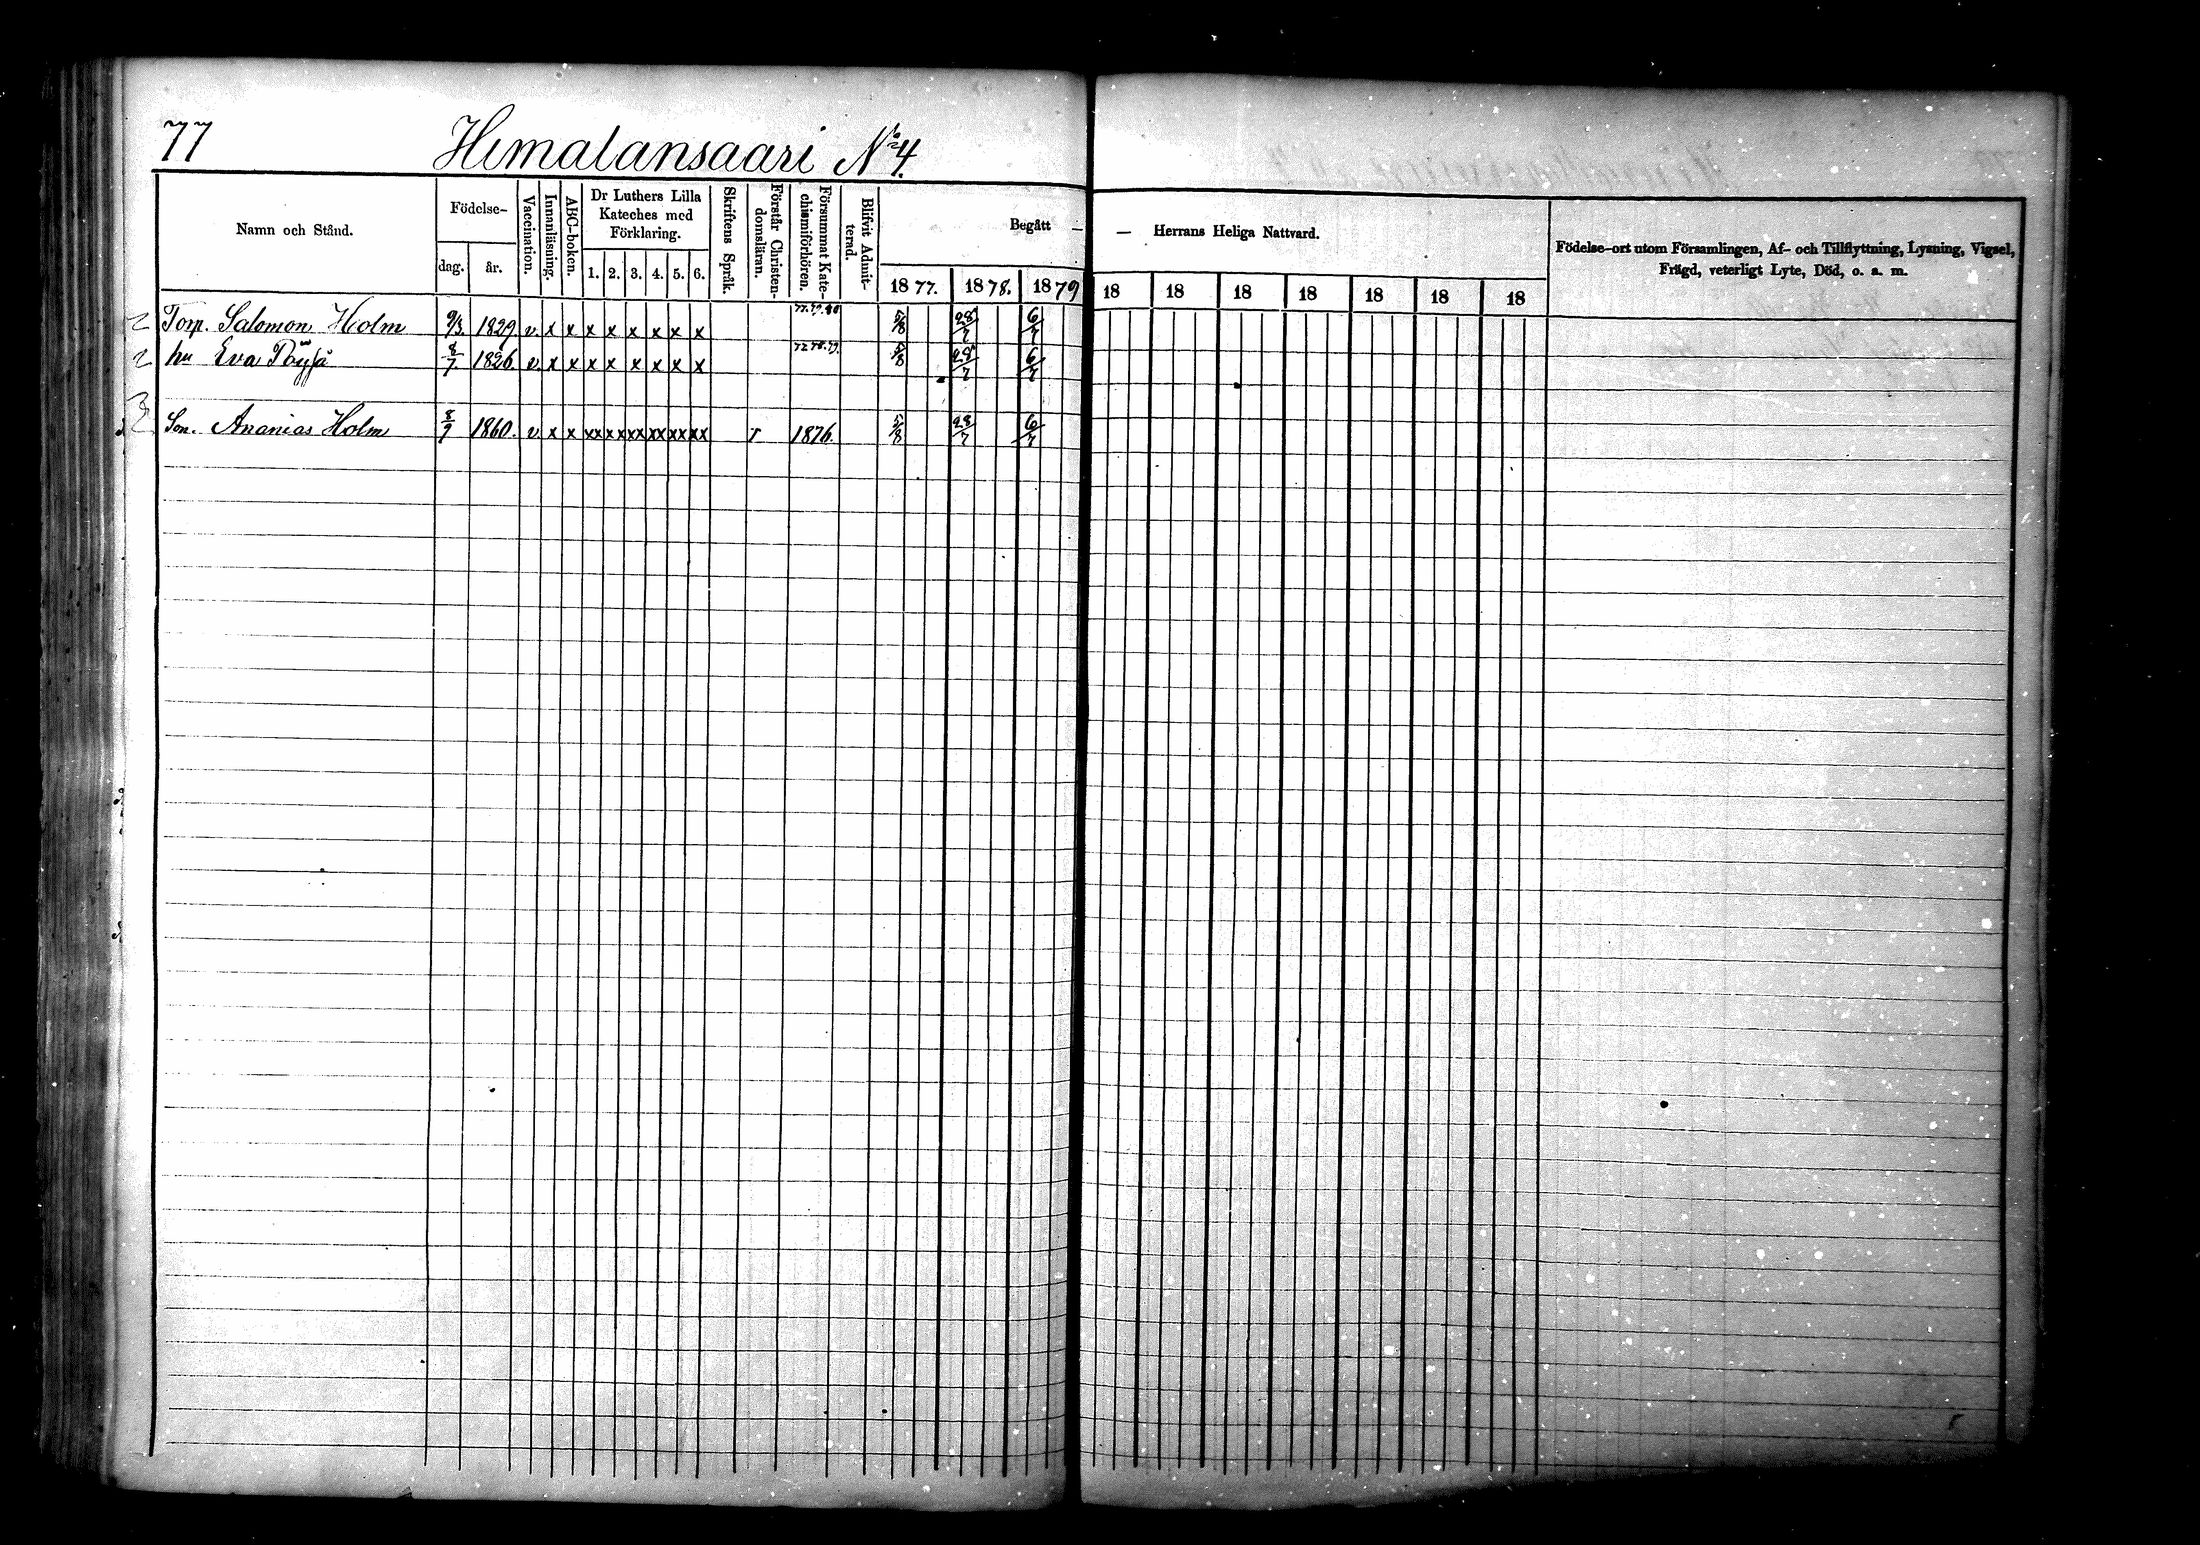 77 Himalansaari No 4.
Namn och Stånd. Födelse- dag. år. Vaccination. Innanläsning. ABC-boken. Dr Luthers Lilla Kateches med Förklaring. 1. 2. 3. 4. 5. 6. Skriftens Språk. Förstår Christendomsläran. Försummat Katechismiförhören. Blifvit Admitterad. Begått — 1877. 1878. 1879
— Herrans Heliga Nattvard. 18 18 18 18 18 18 18
Födelse-ort utom Församlingen, Af- och Tillflyttning, Lysning, Vigsel,
Frägd, veterligt Lyte, Död, o. a. m.
Torp. Salomon Holm 9/3. 1829. v. x x x x x x x x 77.79.80 5/8 28/7 6/7
hu Eva Pöyhö 8/7. 1826. v. x x x x x x x x 77.78.79. 5/8 28/7 6/7
Son. Ananias Holm 8/9 1860. v. x x xx xx xx xx xx xx r 1876. 5/8 28/7 6/7